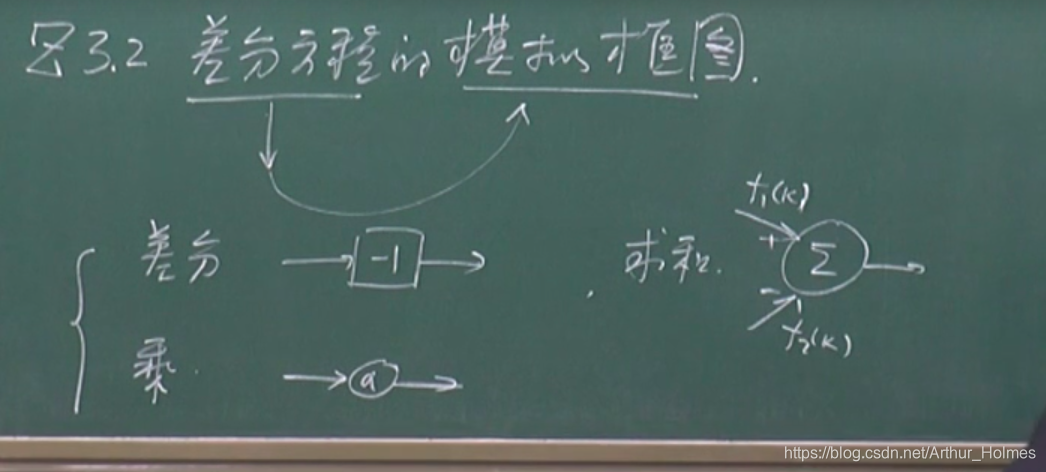 3.2 差分方程的模拟框图.
差分 -1
求和. f₁(k) + Σ - f₂(k)
乘. a
https://blog.csdn.net/Arthur_Holmes